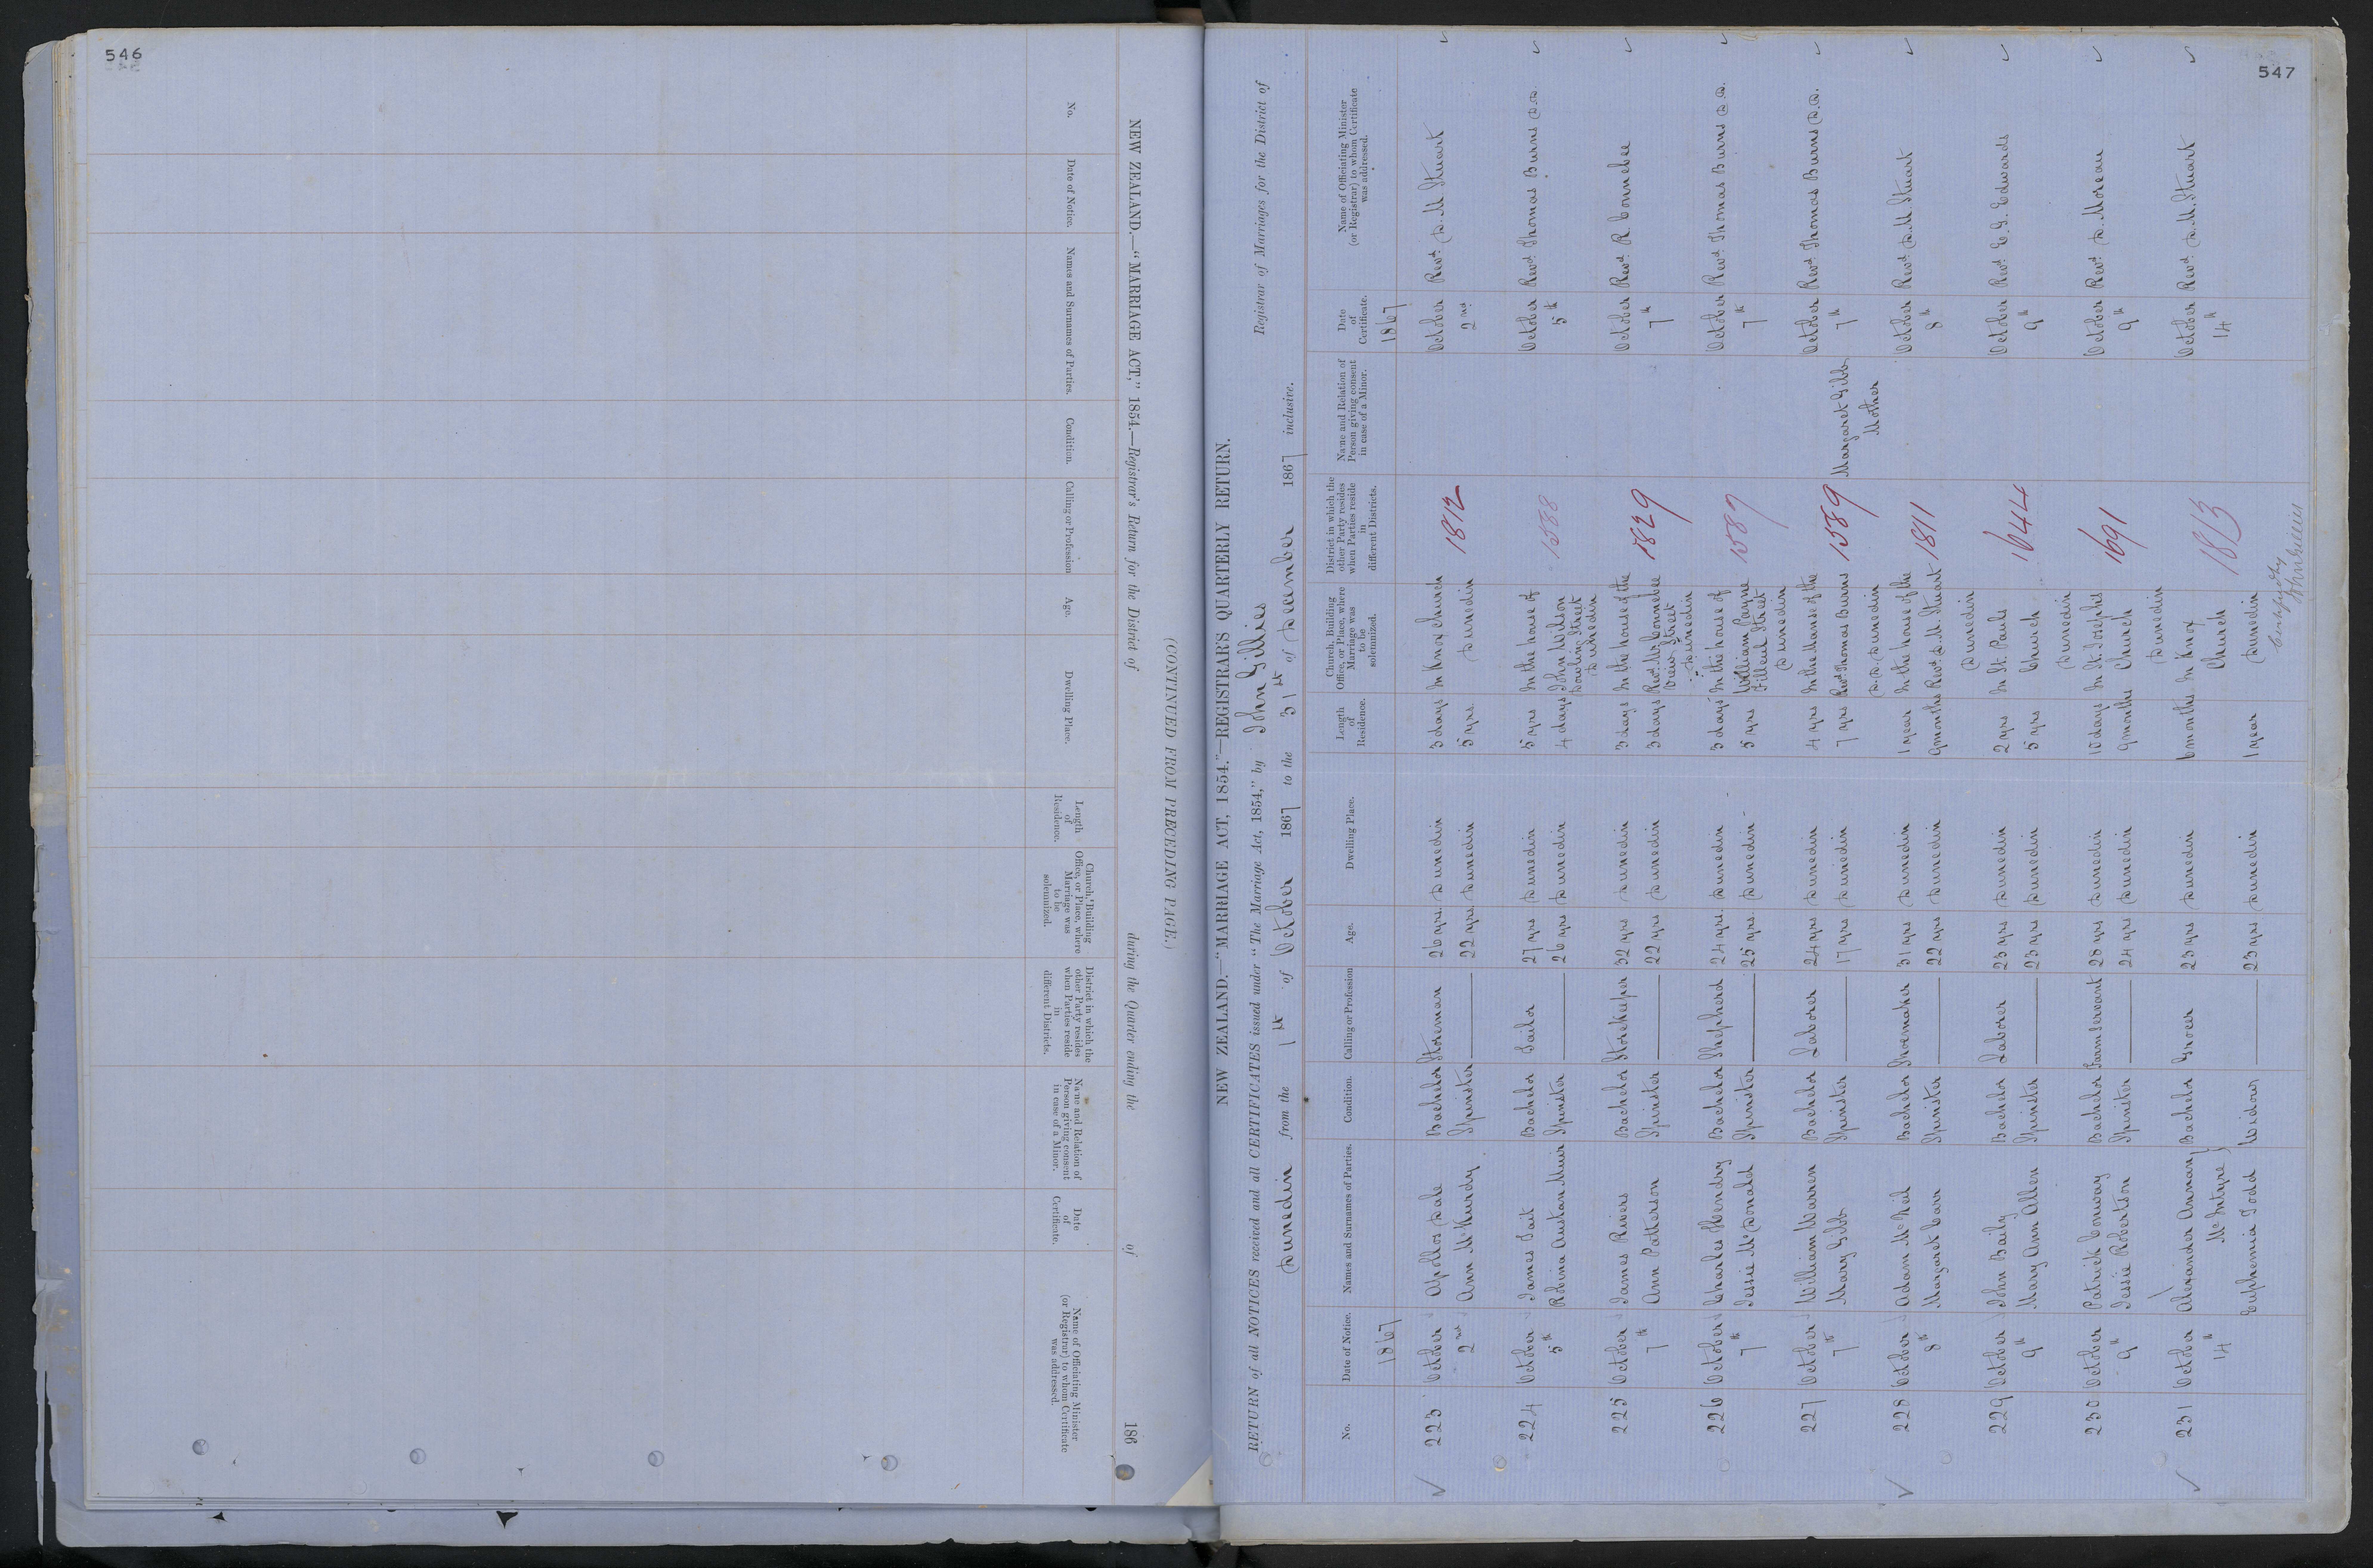 546
NEW ZEALAND.—"MARRIAGE ACT," 1854.—Registrar's Return for the District of during the Quarter ending the of 186
(CONTINUED FROM PRECEDING PAGE.)
No.
Date of Notice.
Names and Surnames of Parties.
Condition.
Calling or Profession
Age.
Dwelling Place.
Length
of
Residence.
Church, Building
Office, or Place, where
Marriage was
to be
solemnized.
District in which the
other Party resides
when Parties reside
in
different Districts.
Name and Relation of
Person giving consent
in case of a Minor.
Date
of
Certificate.
Name of Officiating Minister
(or Registrar) to whom Certificate
was addressed.
547
NEW ZEALAND.—"MARRIAGE ACT, 1854."—REGISTRAR'S QUARTERLY RETURN.
RETURN of all NOTICES received and all CERTIFICATES issued under "The Marriage Act, 1854," by John Gillies Registrar of Marriages for the District of
Dunedin from the 1st of October 1867 to the 31st of December 1867 inclusive.
No.
Date of Notice.
Names and Surnames of Parties.
Condition.
Calling or Profession
Age.
Dwelling Place.
Length
of
Residence.
Church, Building
Office, or Place, where
Marriage was
to be
solemnized.
District in which the
other Party resides
when Parties reside
in
different Districts.
Name and Relation of
Person giving consent
in case of a Minor.
Date
of
Certificate.
Name of Officiating Minister
(or Registrar) to whom Certificate
was addressed.
1867 1867
223 October Apollos Dale Bachelor Storeman 26 yrs. Dunedin 3 days In Knox Church 1812 October Revd. D. M Stuart
2nd Ann McKurdy Spinster 22 yrs. Dunedin 5 yrs. Dunedin 2nd
224 October James Tait Bachelor Sailor 27 yrs Dunedin 5 yrs In the house of 1588 October Revd. Thomas Burns D.D.
5th Robina Austan Muir Spinster 26 yrs Dunedin 4 days John Wilson 5th
Dowling Street
Dunedin
225 October James Rivers Bachelor Storekeeper 32 yrs Dunedin 3 days In the house of the 1829 October Revd. R. Connebee
7th Ann Patterson Spinster 22 yrs Dunedin 3 days Revd. Mr Connebee 7th
View Street
Dunedin
226 October Charles Hendry Bachelor Shepherd 24 yrs. Dunedin 3 days In the house of 1587 October Revd Thomas Burns D.D.
7th Jessie McDonald Spinster 25 yrs. Dunedin 5 yrs William Payne 7th
Filleul Street
Dunedin
227 October William Warren Bachelor Laborer 24 yrs Dunedin 4 yrs In the Manse of the 1589 October Revd Thomas Burns D.D.
7th Mary Gibb Spinster 17 yrs Dunedin 7 yrs Revd Thomas Burns Margaret Gibb 7th
D.D. Dunedin Mother
228 October Adam McNeil Bachelor Shoemaker 31 yrs Dunedin 1 year In the house of the 1811 October Revd D. M. Stuart
8th Margaret Carr Spinster 22 yrs Dunedin 9 months Revd. D. M. Stuart 8th
Dunedin
229 October John Baily Bachelor Laborer 23 yrs Dunedin 2 yrs In St. Pauls 1644 October Revd. E. G. Edwards
9th Mary Ann Allen Spinster 23 yrs Dunedin 5 yrs Church 9th
Dunedin
230 October Patrick Conway Bachelor Farm Servant 28 yrs Dunedin 10 days In St. Josephs 1691 October Revd. D. Moreau
9th Jessie Robertson Spinster 24 yrs Dunedin 9 months Church 9th
Dunedin
231 October Alexander Annan Bachelor Grocer 23 yrs Dunedin 6 months In Knox 1813 October Revd. D. M. Stuart
14th McIntyre Church 14th
Euphemia Todd Widow 23 yrs Dunedin 1 year Dunedin
John Gillies